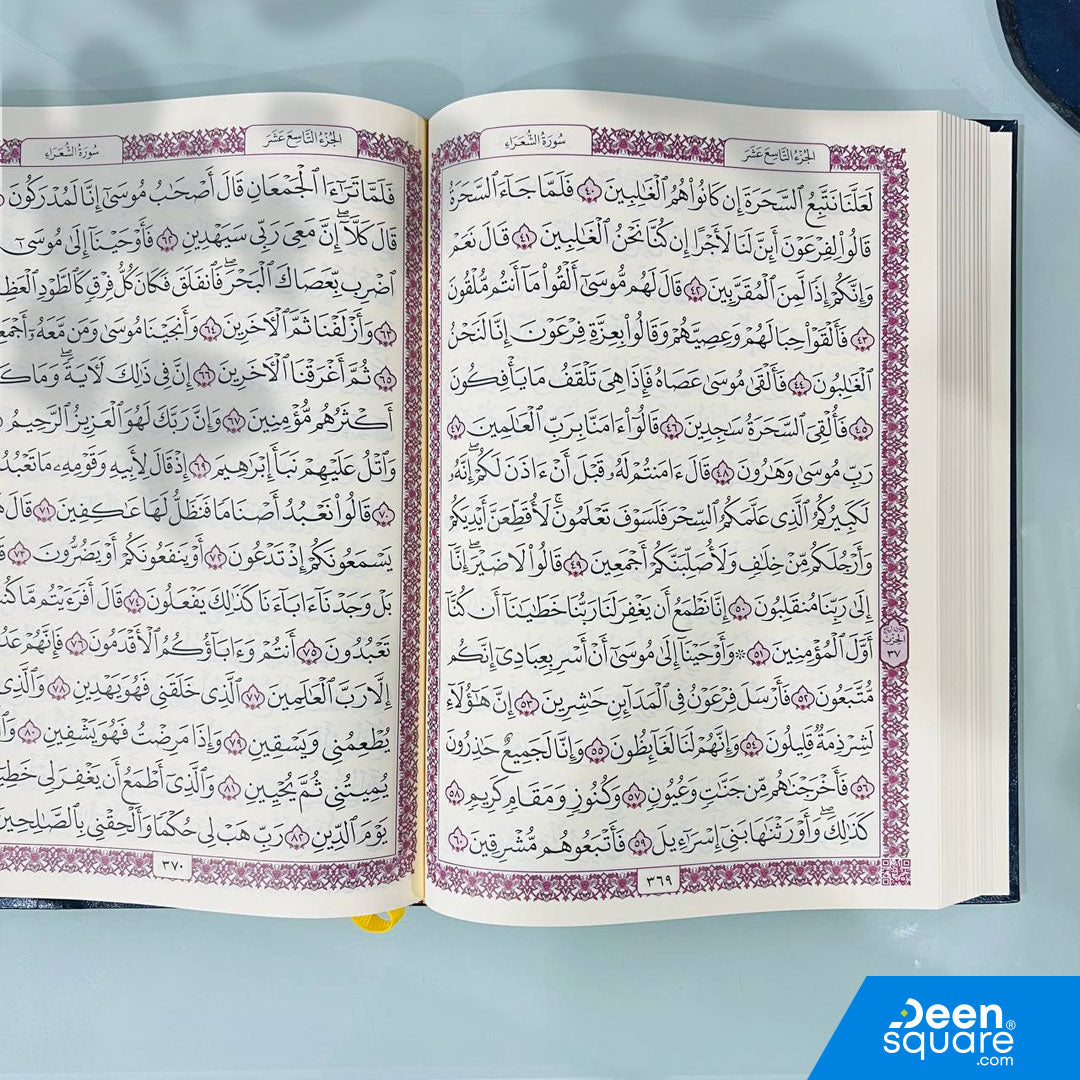 الجزء التاسع عشر
سورة الشعراء
لَعَلَّنَا نَتَّبِعُ ٱلسَّحَرَةَ إِن كَانُوا۟ هُمُ ٱلْغَٰلِبِينَ ٤٠ فَلَمَّا جَآءَ ٱلسَّحَرَةُ
قَالُوا۟ لِفِرْعَوْنَ أَئِنَّ لَنَا لَأَجْرًا إِن كُنَّا نَحْنُ ٱلْغَٰلِبِينَ ٤١ قَالَ نَعَمْ
وَإِنَّكُمْ إِذًا لَّمِنَ ٱلْمُقَرَّبِينَ ٤٢ قَالَ لَهُم مُّوسَىٰٓ أَلْقُوا۟ مَآ أَنتُم مُّلْقُونَ
٤٣ فَأَلْقَوْا۟ حِبَالَهُمْ وَعِصِيَّهُمْ وَقَالُوا۟ بِعِزَّةِ فِرْعَوْنَ إِنَّا لَنَحْنُ
ٱلْغَٰلِبُونَ ٤٤ فَأَلْقَىٰ مُوسَىٰ عَصَاهُ فَإِذَا هِىَ تَلْقَفُ مَا يَأْفِكُونَ
٤٥ فَأُلْقِىَ ٱلسَّحَرَةُ سَٰجِدِينَ ٤٦ قَالُوٓا۟ ءَامَنَّا بِرَبِّ ٱلْعَٰلَمِينَ ٤٧
رَبِّ مُوسَىٰ وَهَٰرُونَ ٤٨ قَالَ ءَامَنتُمْ لَهُۥ قَبْلَ أَنْ ءَاذَنَ لَكُمْ ۖ إِنَّهُۥ
لَكَبِيرُكُمُ ٱلَّذِى عَلَّمَكُمُ ٱلسِّحْرَ فَلَسَوْفَ تَعْلَمُونَ ۚ لَأُقَطِّعَنَّ أَيْدِيَكُمْ
وَأَرْجُلَكُم مِّنْ خِلَٰفٍ وَلَأُصَلِّبَنَّكُمْ أَجْمَعِينَ ٤٩ قَالُوا۟ لَا ضَيْرَ ۖ إِنَّآ
إِلَىٰ رَبِّنَا مُنقَلِبُونَ ٥٠ إِنَّا نَطْمَعُ أَن يَغْفِرَ لَنَا رَبُّنَا خَطَٰيَٰنَآ أَن كُنَّآ
أَوَّلَ ٱلْمُؤْمِنِينَ ٥١ ۞ وَأَوْحَيْنَآ إِلَىٰ مُوسَىٰٓ أَنْ أَسْرِ بِعِبَادِىٓ إِنَّكُم
مُّتَّبَعُونَ ٥٢ فَأَرْسَلَ فِرْعَوْنُ فِى ٱلْمَدَآئِنِ حَٰشِرِينَ ٥٣ إِنَّ هَٰٓؤُلَآءِ
لَشِرْذِمَةٌ قَلِيلُونَ ٥٤ وَإِنَّهُمْ لَنَا لَغَآئِظُونَ ٥٥ وَإِنَّا لَجَمِيعٌ حَٰذِرُونَ
٥٦ فَأَخْرَجْنَٰهُم مِّن جَنَّٰتٍ وَعُيُونٍ ٥٧ وَكُنُوزٍ وَمَقَامٍ كَرِيمٍ ٥٨
كَذَٰلِكَ ۖ وَأَوْرَثْنَٰهَا بَنِىٓ إِسْرَٰٓءِيلَ ٥٩ فَأَتْبَعُوهُم مُّشْرِقِينَ ٦٠
الحزب
٣٧
٣٦٩
الجزء التاسع عشر
سورة الشعراء
فَلَمَّا تَرَٰٓءَا ٱلْجَمْعَانِ قَالَ أَصْحَٰبُ مُوسَىٰٓ إِنَّا لَمُدْرَكُونَ
قَالَ كَلَّآ ۖ إِنَّ مَعِىَ رَبِّى سَيَهْدِينِ ٦٢ فَأَوْحَيْنَآ إِلَىٰ مُوسَىٰٓ
ٱضْرِب بِّعَصَاكَ ٱلْبَحْرَ ۖ فَٱنفَلَقَ فَكَانَ كُلُّ فِرْقٍ كَٱلطَّوْدِ
٦٣ وَأَزْلَفْنَا ثَمَّ ٱلْءَاخَرِينَ ٦٤ وَأَنجَيْنَا مُوسَىٰ وَمَن مَّعَهُۥٓ
٦٥ ثُمَّ أَغْرَقْنَا ٱلْءَاخَرِينَ ٦٦ إِنَّ فِى ذَٰلِكَ لَءَايَةً ۖ وَمَا
أَكْثَرُهُم مُّؤْمِنِينَ ٦٧ وَإِنَّ رَبَّكَ لَهُوَ ٱلْعَزِيزُ ٱلرَّحِيمُ
وَٱتْلُ عَلَيْهِمْ نَبَأَ إِبْرَٰهِيمَ ٦٩ إِذْ قَالَ لِأَبِيهِ وَقَوْمِهِۦ مَا تَعْبُدُ
٧٠ قَالُوا۟ نَعْبُدُ أَصْنَامًا فَنَظَلُّ لَهَا عَٰكِفِينَ ٧١ قَالَ
يَسْمَعُونَكُمْ إِذْ تَدْعُونَ ٧٢ أَوْ يَنفَعُونَكُمْ أَوْ يَضُرُّونَ ٧٣
بَلْ وَجَدْنَآ ءَابَآءَنَا كَذَٰلِكَ يَفْعَلُونَ ٧٤ قَالَ أَفَرَءَيْتُم مَّا
تَعْبُدُونَ ٧٥ أَنتُمْ وَءَابَآؤُكُمُ ٱلْأَقْدَمُونَ ٧٦ فَإِنَّهُمْ
إِلَّا رَبَّ ٱلْعَٰلَمِينَ ٧٧ ٱلَّذِى خَلَقَنِى فَهُوَ يَهْدِينِ ٧٨ وَٱلَّذِى
يُطْعِمُنِى وَيَسْقِينِ ٧٩ وَإِذَا مَرِضْتُ فَهُوَ يَشْفِينِ ٨٠
يُمِيتُنِى ثُمَّ يُحْيِينِ ٨١ وَٱلَّذِىٓ أَطْمَعُ أَن يَغْفِرَ لِى
يَوْمَ ٱلدِّينِ ٨٢ رَبِّ هَبْ لِى حُكْمًا وَأَلْحِقْنِى بِٱلصَّٰلِحِينَ
٣٧٠
Deen
square®
.com